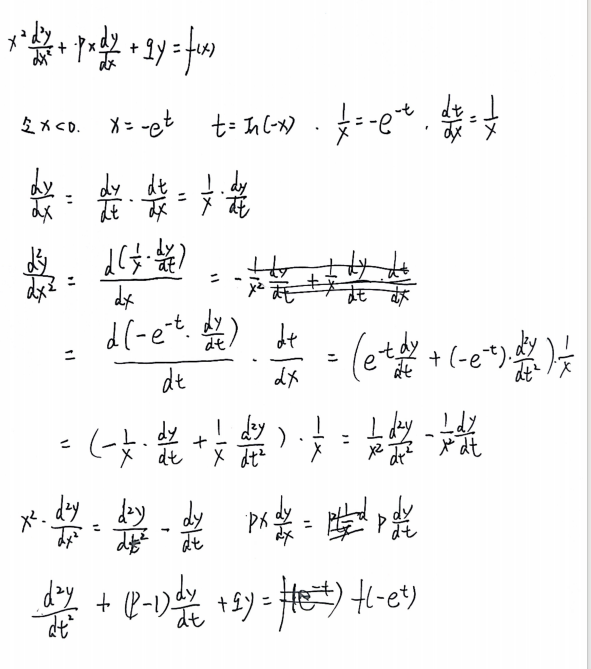 x² d²y/dx² + px dy/dx + qy = f(x)
x<0. x = -e^t t = ln(-x). 1/x = -e^-t, dt/dx = 1/x
dy/dx = dy/dt · dt/dx = 1/x · dy/dt
d²y/dx² = d(1/x · dy/dt)/dx = - 1/x² dy/dt + 1/x dy/dt dt/dx
= d(-e^-t · dy/dt)/dt · dt/dx = (e^-t dy/dt + (-e^-t) · d²y/dt²) · 1/x
= (-1/x · dy/dt + 1/x d²y/dt²) · 1/x = 1/x² d²y/dt² - 1/x² dy/dt
x² · d²y/dx² = d²y/dt² - dy/dt px dy/dx = p dy/dt
d²y/dt² + (p-1) dy/dt + qy = f(e^-t) f(-e^t)